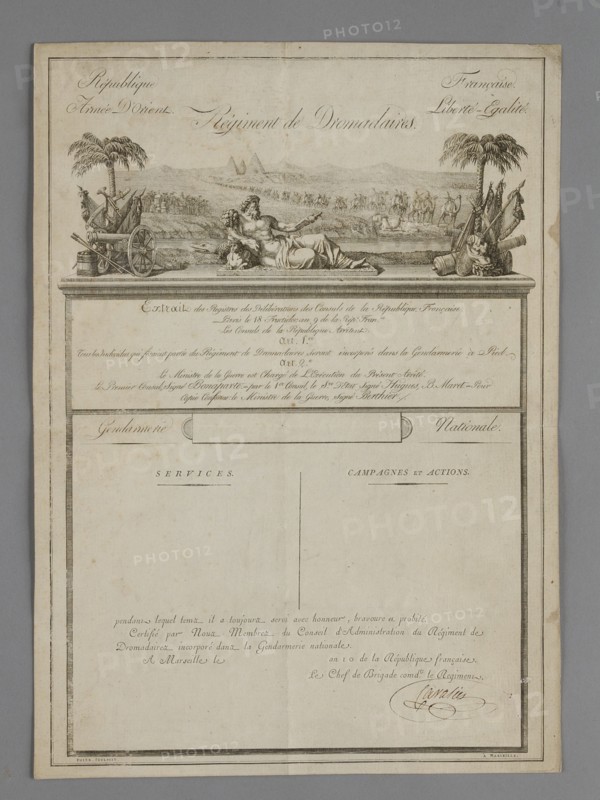 République Française.
Armée D'Orient Liberté-Egalité.
Régiment de Dromadaires.
Extrait des Registres des Délibérations des Consuls de la République Française
Paris le 18 an 9 de la
Les Consuls de la République Arrêtent
Art. 1er
du Régiment de Dromadaires seront incorporés dans la Gendarmerie à Pied.
Art. 2e
Le Ministre de la Guerre est Chargé de L'Exécution du Présent Arrêté
Le Premier Consul, signé Bonaparte par le 1er Consul, le signé Hugues, B. Maret Pour
Copie Conforme le Ministre de la Guerre, signé Berthier
Gendarmerie Nationale.
SERVICES. CAMPAGNES ET ACTIONS.
pendant lequel tems il a toujours servi avec honneur, bravoure et probité.
Certifié par Nous Membres du Conseil d'Administration du Régiment de
Dromadaires incorporé dans la Gendarmerie nationale.
A Marseille le an 10 de la République française.
Le Chef de Brigade comdt. le Régiment.
Cavalier
A Marseille.
PHOTO12